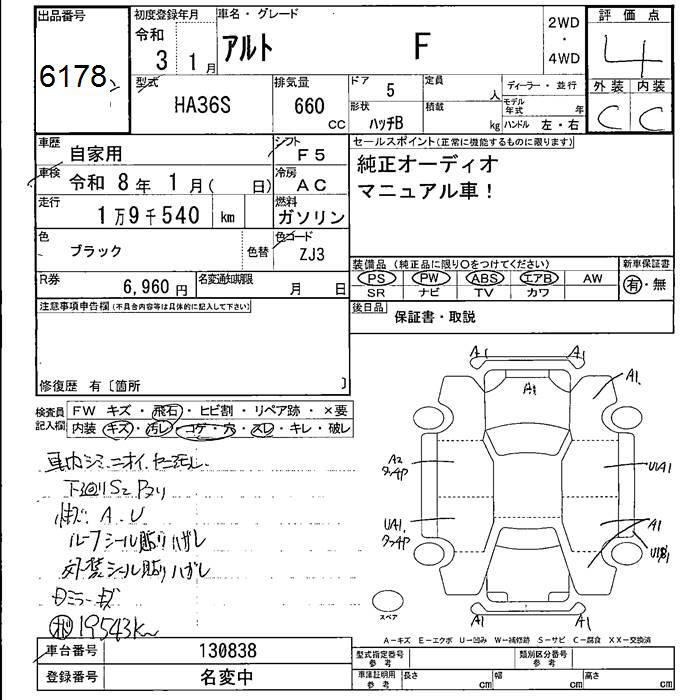 出品番号
6178
初度登録年月
令和
3 1月
車名・グレード
アルト F
2WD
・
4WD
評価点
4
外装 内装
C C
型式
HA36S
排気量
660 CC
ドア 5
定員 人
形状 ハッチB
積載 kg
ディーラー・並行
モデル年式 年
ハンドル 左・右
車歴 自家用
シフト F5
車検 令和 8年 1月( 日)
冷房 AC
走行 1万9千540 km
燃料 ガソリン
色 ブラック
色替
色コード ZJ3
R券 6,960円
名変通知期限 月 日
セールスポイント(正常に機能するものに限ります)
純正オーディオ
マニュアル車!
装備品 (純正品に限り〇をつけてください)
PS PW ABS エアB AW
SR ナビ TV カワ
新車保証書
有・無
後日品 保証書・取説
注意事項申告欄(不具合内容等は具体的に記入して下さい)
修復歴 有〔箇所 〕
検査員記入欄
FW キズ・飛石・ヒビ割・リペア跡・×要
内装 キズ・汚レ・コゲ・穴・スレ・キレ・破レ
下廻りS2
A.U
ルーフシール貼りハガレ
外装シール貼りハガレ
19543km
A1 A1
A1
A1
A2
UA1
UA1
A1
A1 A1
スペア
A-キズ E-エクボ U-凹み W-補修跡 S-サビ C-腐食 XX-交換済
車台番号 130838
登録番号 名変中
型式指定番号 参考
類別区分番号 参考
車庫証明用 参考
長さ cm
幅 cm
高さ cm